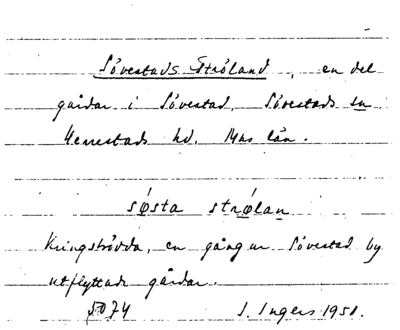 Sövestads Ströland, en del
gårdar i Sövestad, Sövestads sn
Herrestads hd, Mlms län.
sǿsta strǿlan
Kringströdda, en gång ur Sövestad by
utflyttade gårdar.
5074 I. Ingers 1951.